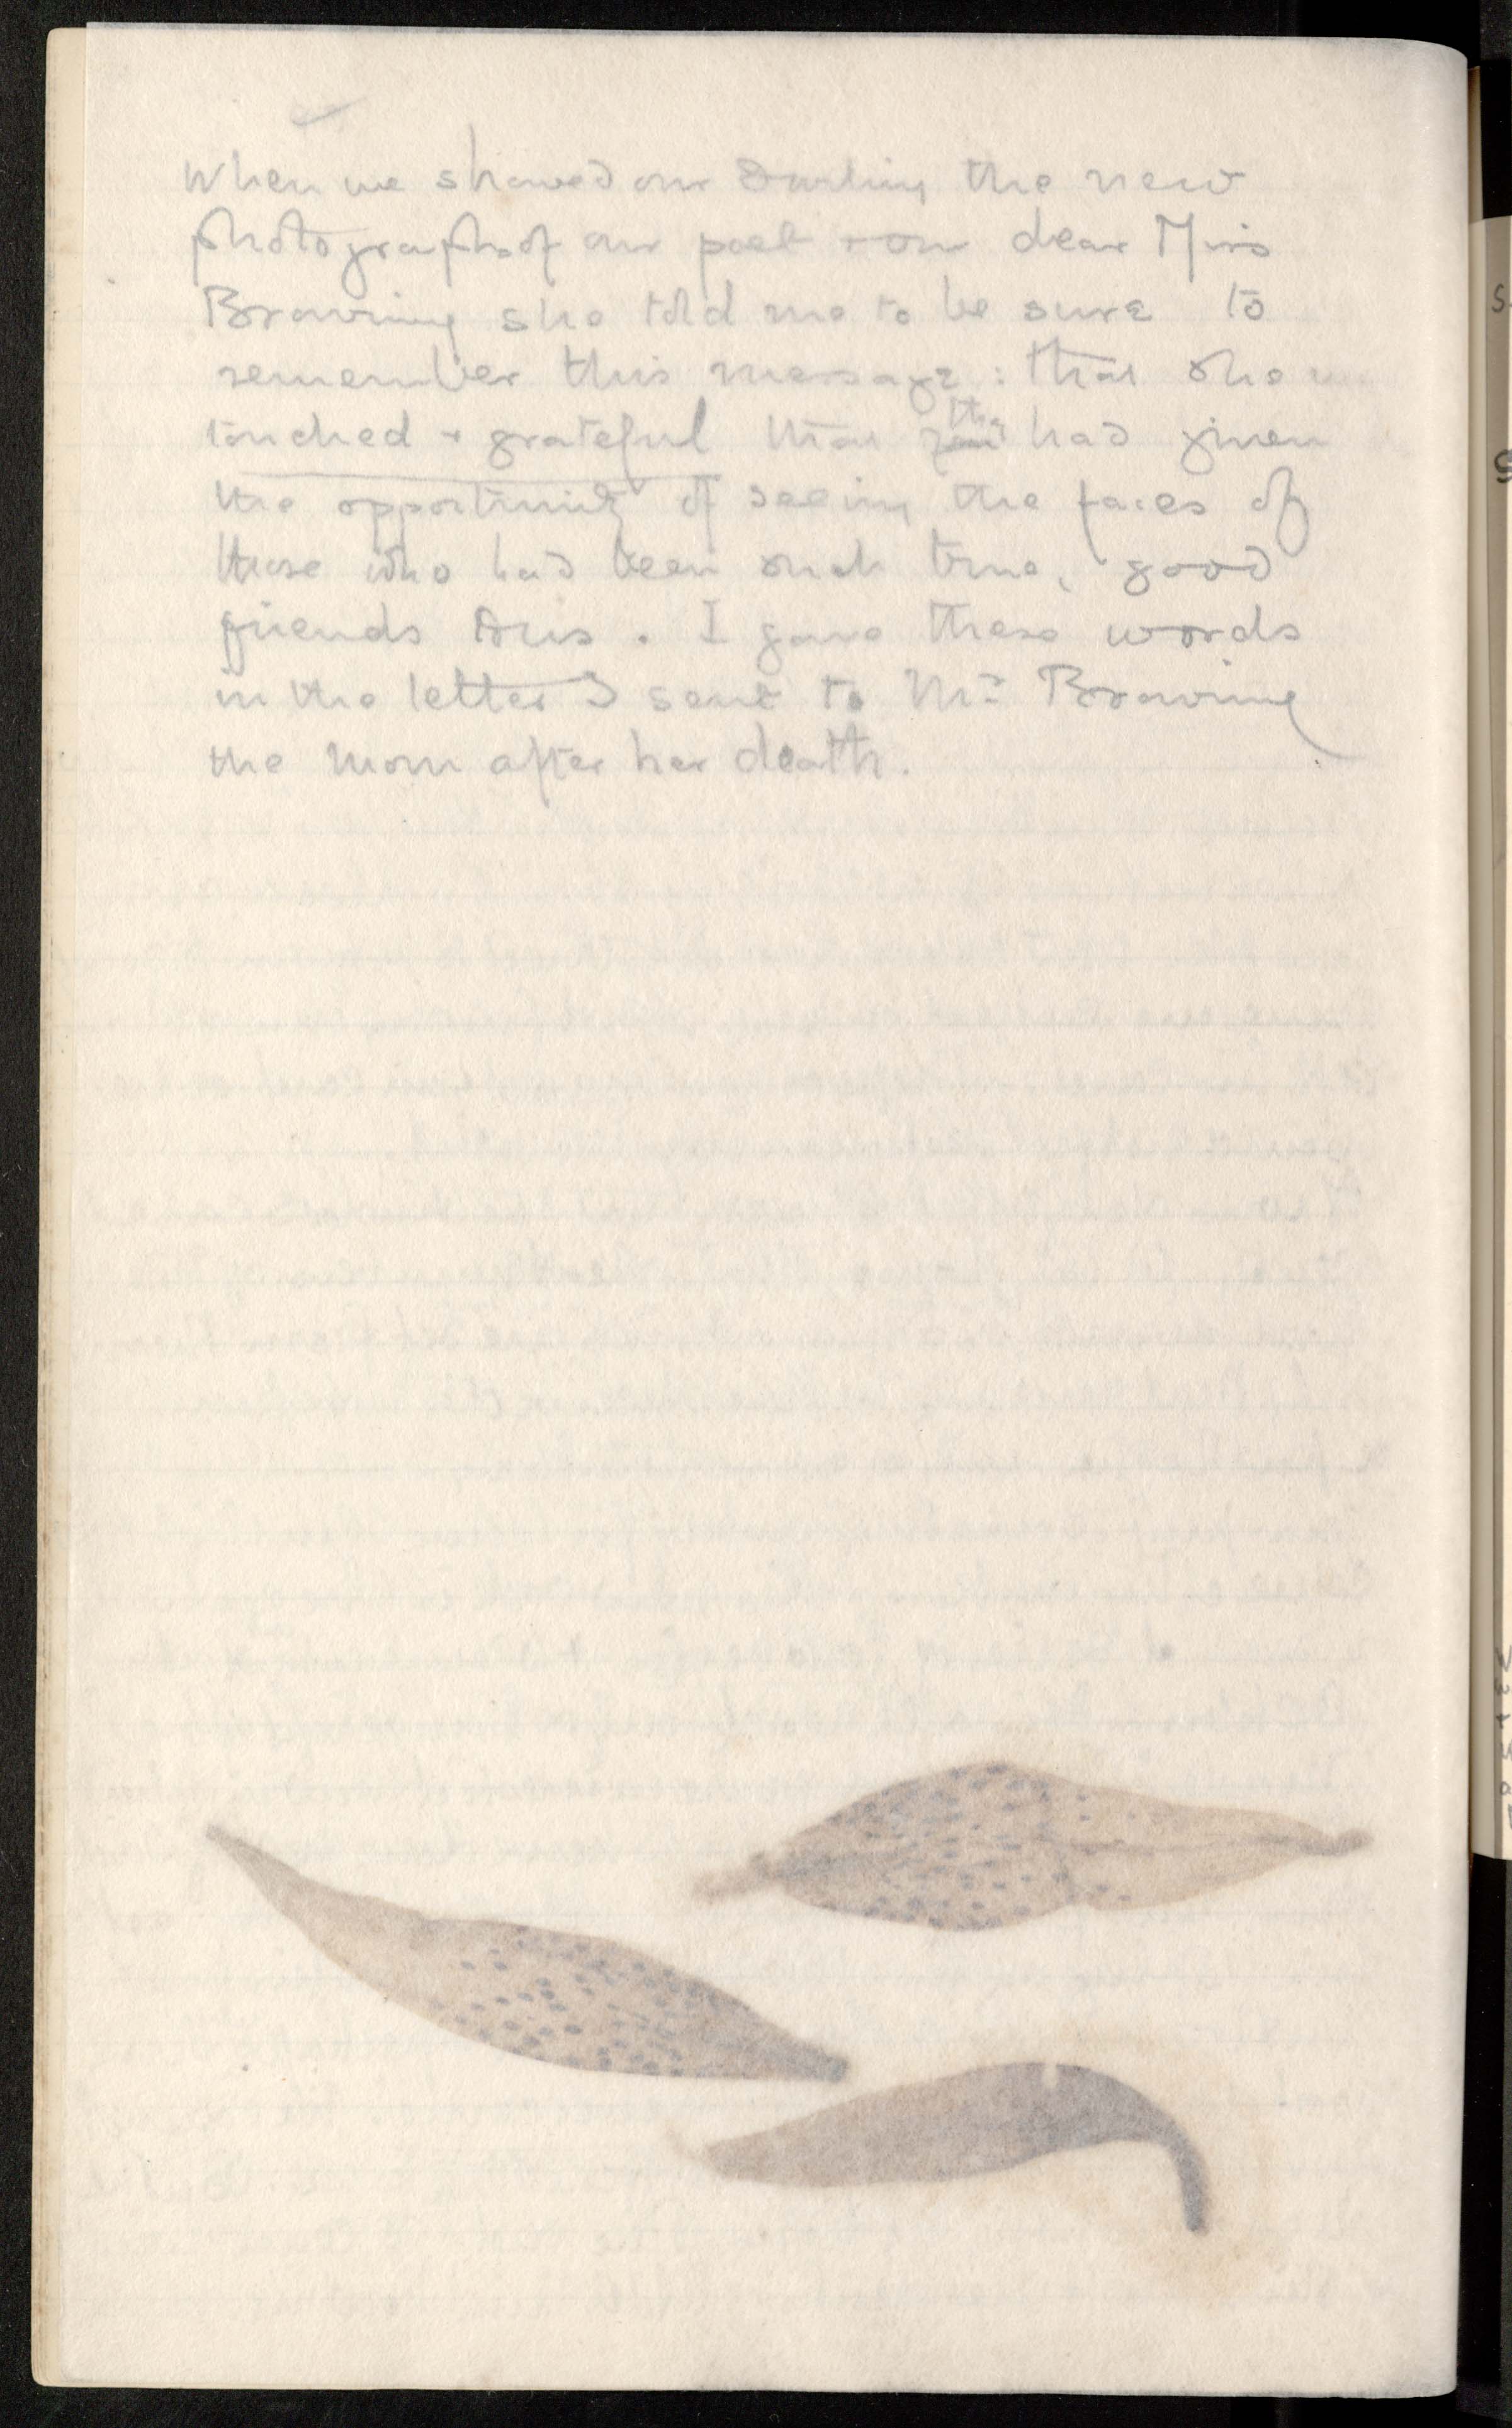 When we showed our Darling the new
photographs of our poet + our dear Miss
Browning she told me to be sure to
remember this message: that she
touched + grateful that they had given
the opportunity of seeing the faces of
those who had been such true, good
friends to us. I gave these words
in the letter I sent to Mr Browning
the morn after her death.